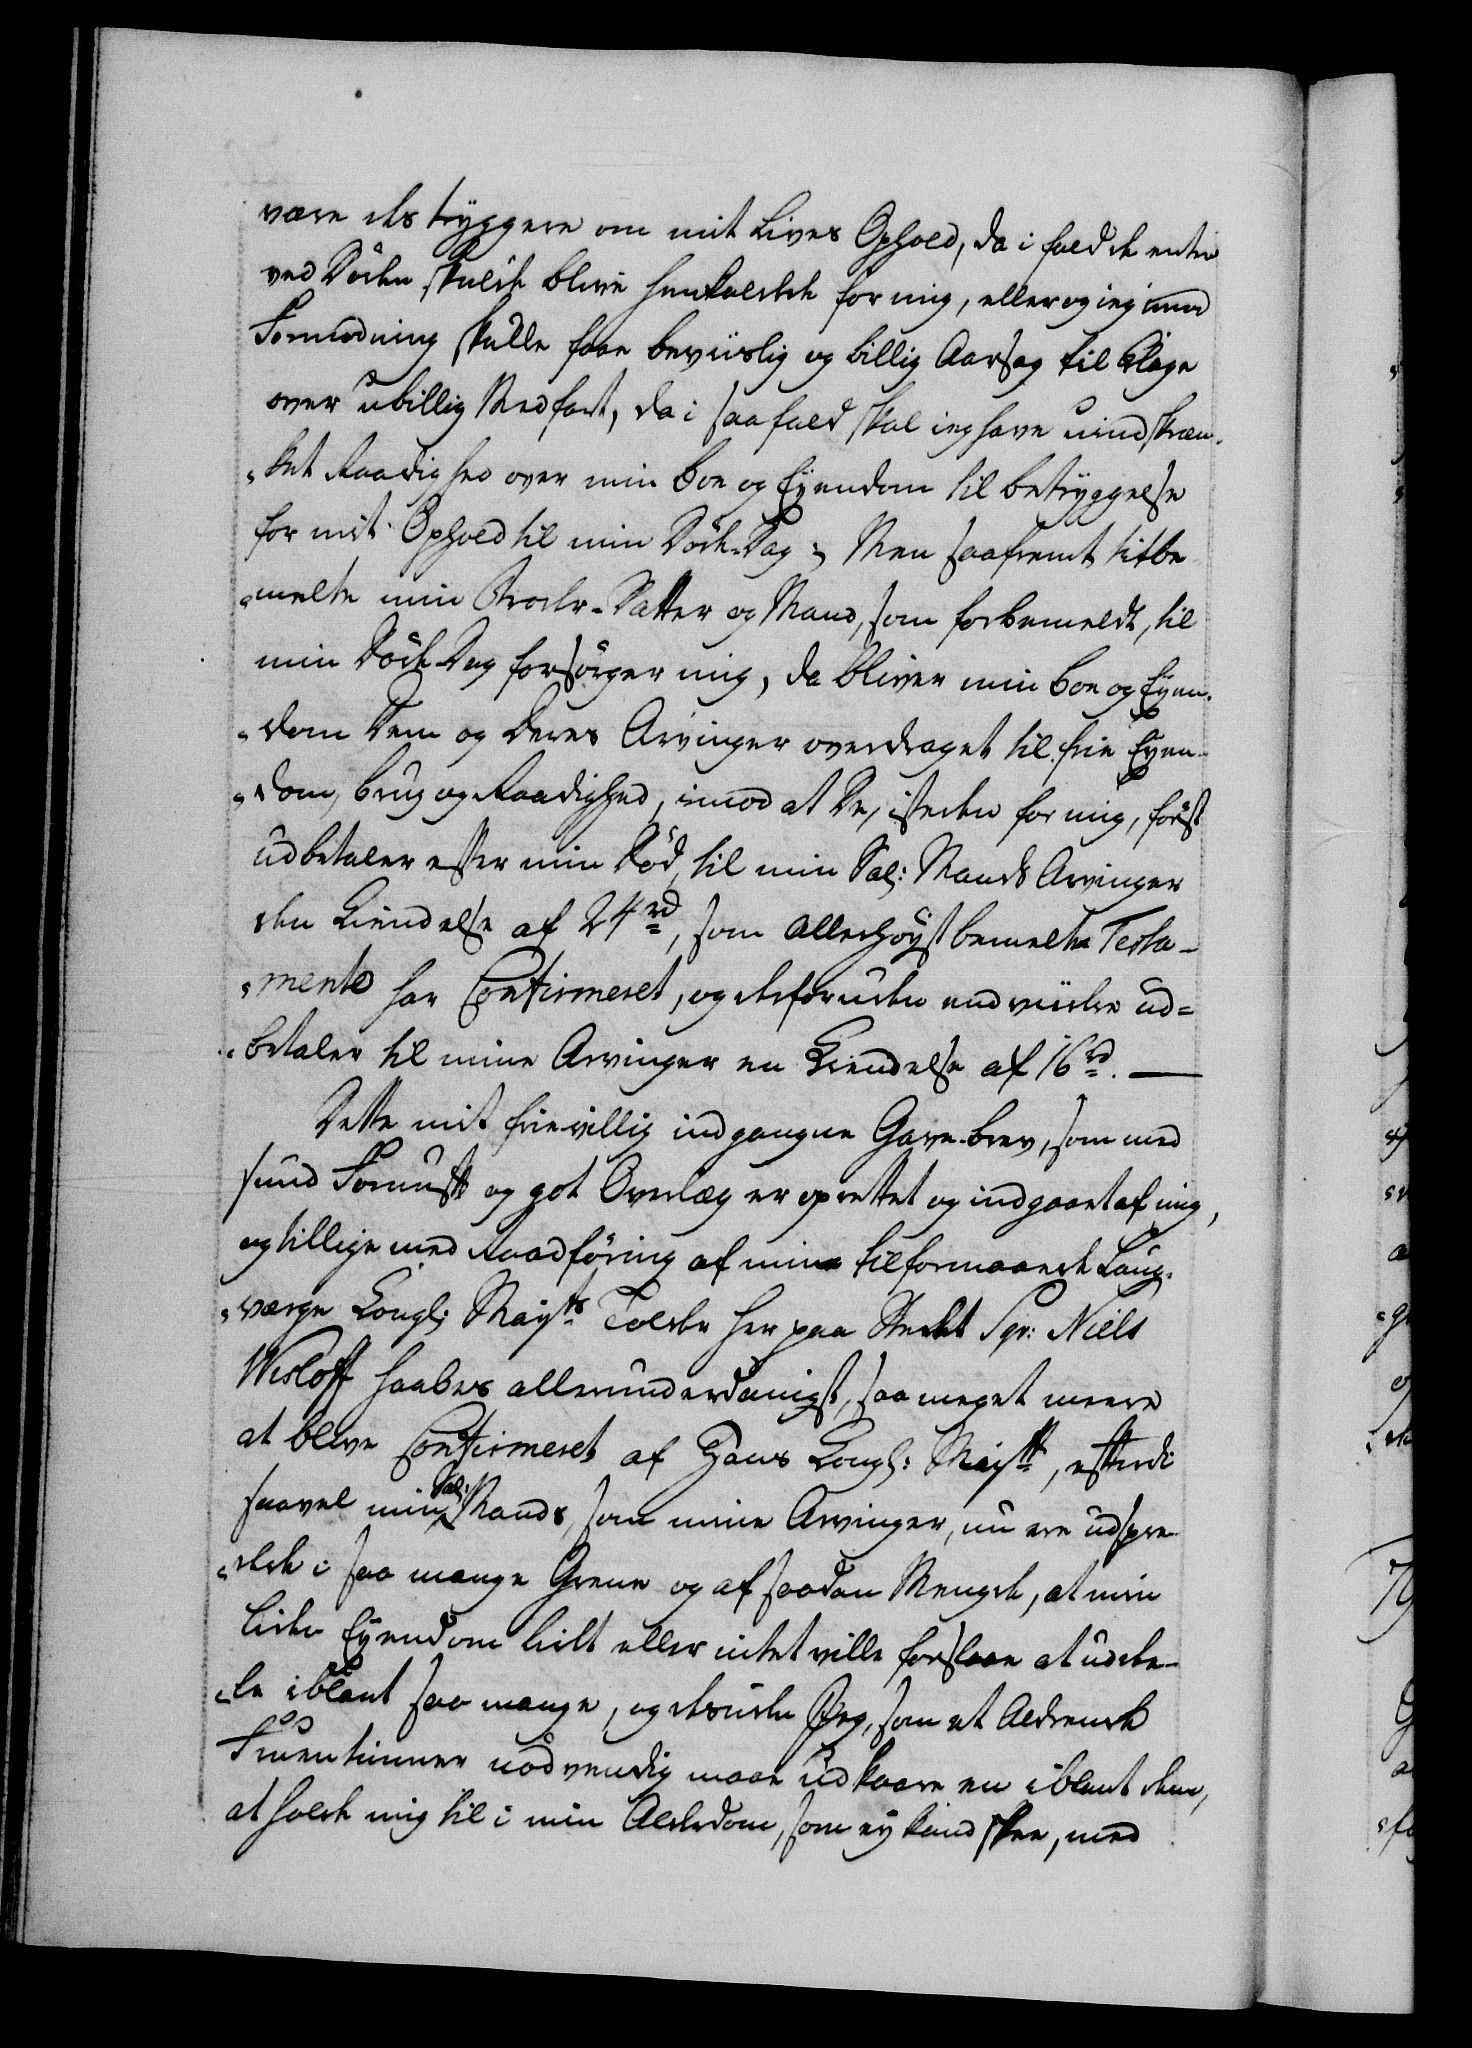 være des tryggere om mit Lives Ophold, da i fald de enten
ved Døden skulde blive henkaldede for mig, eller og ieg imod
Formodning skulle faae beviislig og billig Aarsag til Klage
over ubillig Medfart, da i saafald skal ieg have uindskræn-
ket Raadighed over min Boe og Eyendom til betryggelse
for mit Ophold til min Døde-Dag; Men saafremt titbe
melte min Broder-Datter og Mand, som forbemeldt, til
min Døde Dag forsørger mig, da bliver min Boe og Eyen-
dom Dem og Deres Arvinger overdraget til frie Eyen-
dom, brug og Raadighed, imod at De, isteden for mig, først
udbetaler efter min Død, til min Sal: Mands Arvinger
den Kiendelse af 24 rd, som allerhøystbemelte Testa-
mente har Confirmeret, og desforuden endviidere ud=
betaler til mine Arvinger en Kiendelse af 16 rd. —
Dette mit frievillig indgangne Gave-brev, som med
sund Fornuft og got Overlæg er oprettet og indgaaet af mig,
og tillige med Raadføring af min tilformaaede Laug-
værge Kongl: Mayts Tolder her paa Stedet Sgr: Niels
Wisloff haabes allerunderdanigst, saa meget meere
at blive Confirmeret af Hans Kongl: Maytt, efterdi
saavel min Sal: Mands, som mine Arvinger, nu ere udspre
dede i saa mange Grene og af saadan Mengde, at min
liden Eyendom lidt eller intet ville forslaae at udde-
le iblant saa mange, og desuden Jeg, som et Aldrende
Fruentimmer nødvendig maae udkaare en iblant dem,
at holde mig til i min Alderdom, som ey kand skee, med